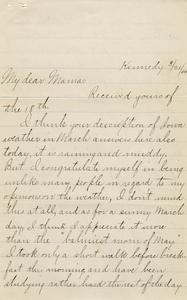 Kennedy 3/21/
My dear Mama:
Received yours of
the 18th.
I think your description of Iowa
weather in March answers here also
today, it is rainy and muddy.
But I congratulate myself in being
unlike many people in regard to my
opinions on the weather, I don't mind
this at all, and as for a sunny March
day, I think I appreciate it more
than the "balmiest morn of May"
I took only a short walk before break-
fast this morning and have been
studying rather hard the rest of the day